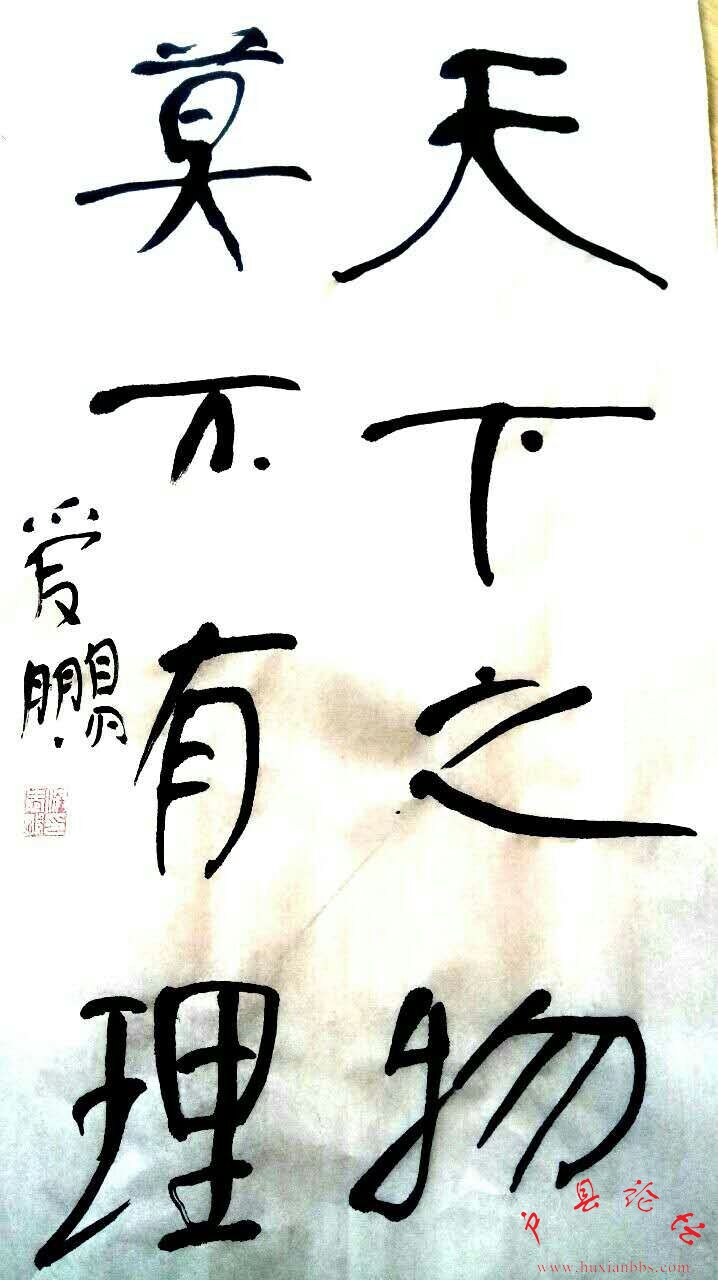 天下之物
莫不有理
爱鹏
户县论坛
www.huxianbbs.com